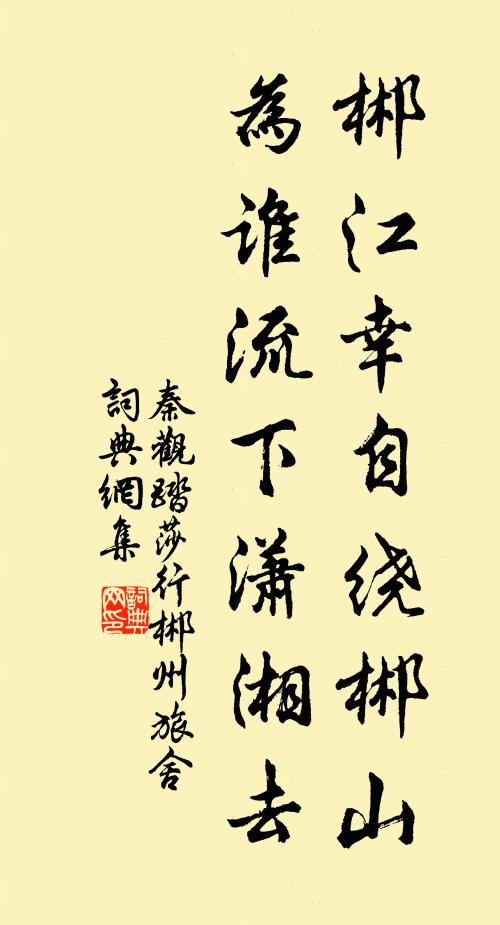 郴江幸自绕郴山
為谁流下潇湘去
秦觀踏莎行郴州旅舍
詞典網集
詞典网印